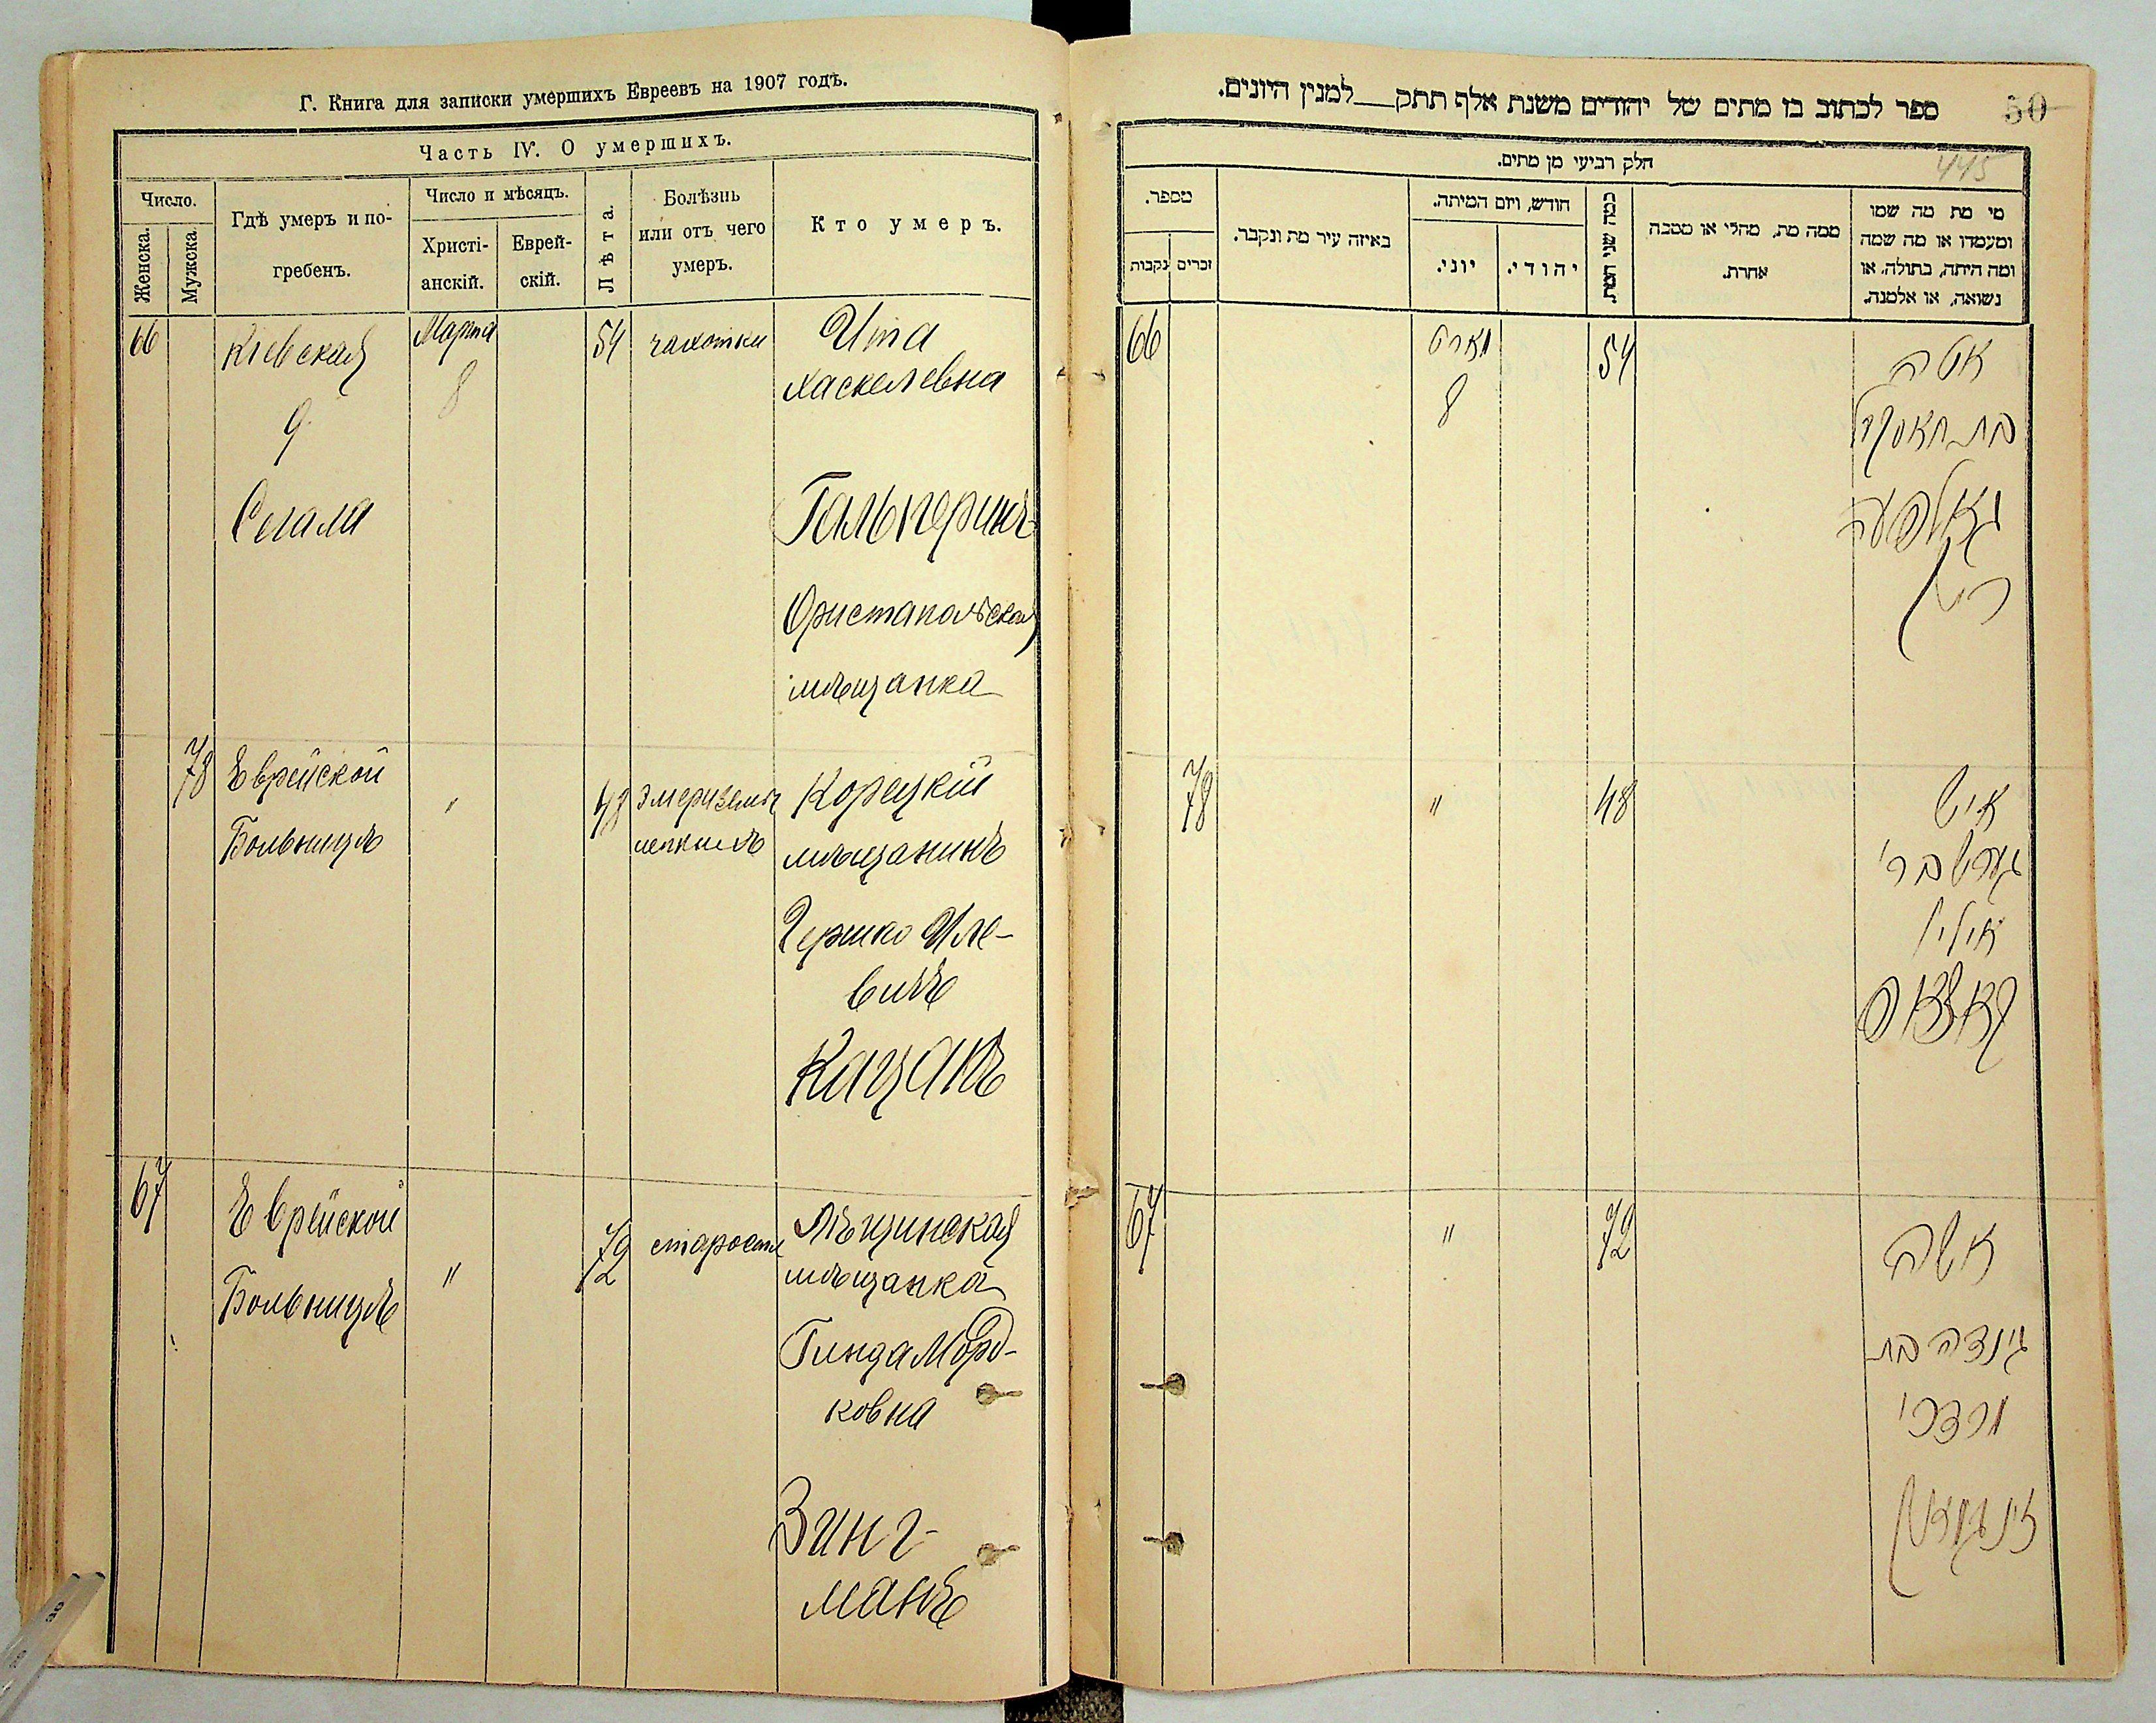 Г. Книга для записки умершихъ Евреевъ на 1907 годъ.
Часть IV. О умершихъ.
Число.
Женска.
Мужска.
Гдѣ умеръ и по-
гребенъ.
Число и мѣсяцъ.
Христі-
анскій.
Еврей-
скій.
Лѣта.
Болѣзнь
или отъ чего
умеръ.
Кто умеръ.
66
Кіевская
9
Марта
8
54
чахотки
Ита
Хаскелевна
Гальперинъ
мѣщанка
78
Еврейской
Больницѣ
"
48
легкихъ
Корецкій
мѣщанинъ
Гершко Иле-
вичъ
Кацапъ
67
Еврейской
Больницѣ
"
72
старости
мѣщанка
Гинда Мор-
ковна
Зинг-
манъ
50
ספר לכתוב בו מתים של יהודים משנת אלף תתק__למנין היונים.
445
חלק רביעי מן מתים.
מספר.
נקבות
זכרים
באיזה עיר מת ונקבר.
חודש, ויום המיתה.
יוני.
יהודי.
כמה שני המת.
ממה מת, מחלי או מסבה
אחרת.
מי מת מה שמו
ומעמדו או מה שמה
ומה היתה, בתולה, או
נשואה, או אלמנה.
66
מארט
8
54
בת חאסקל
גאלפער
78
"
48
איש
גערש בר'
קאצאפ
67
"
72
אשה
גינדה בת
מרדכי
זינגמאן